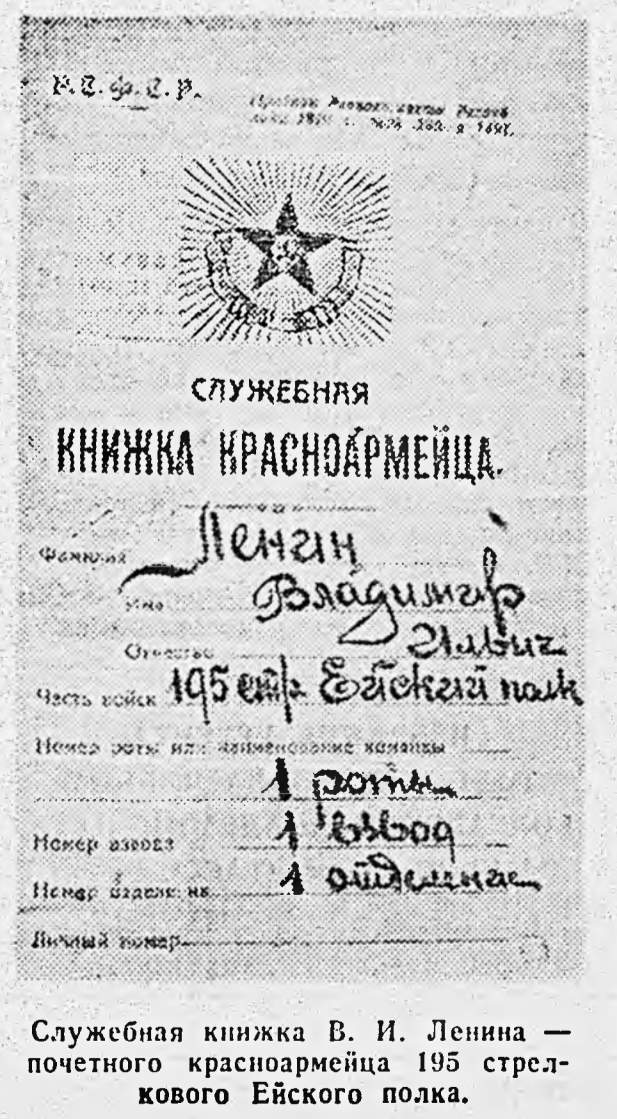 Р.С.Ф.С.Р.
СЛУЖЕБНАЯ
КНИЖКА КРАСНОАРМЕЙЦА.
Фамилия Ленин
Имя Владимир
Отчество Ильич
Часть войск 195 стр. Ейский полк
Номер роты или наименование команды
1 роты
Номер взвода 1 взвод
Номер отделения 1 отделение
Личный номер
Служебная книжка В. И. Ленина —
почетного красноармейца 195 стрел-
кового Ейского полка.